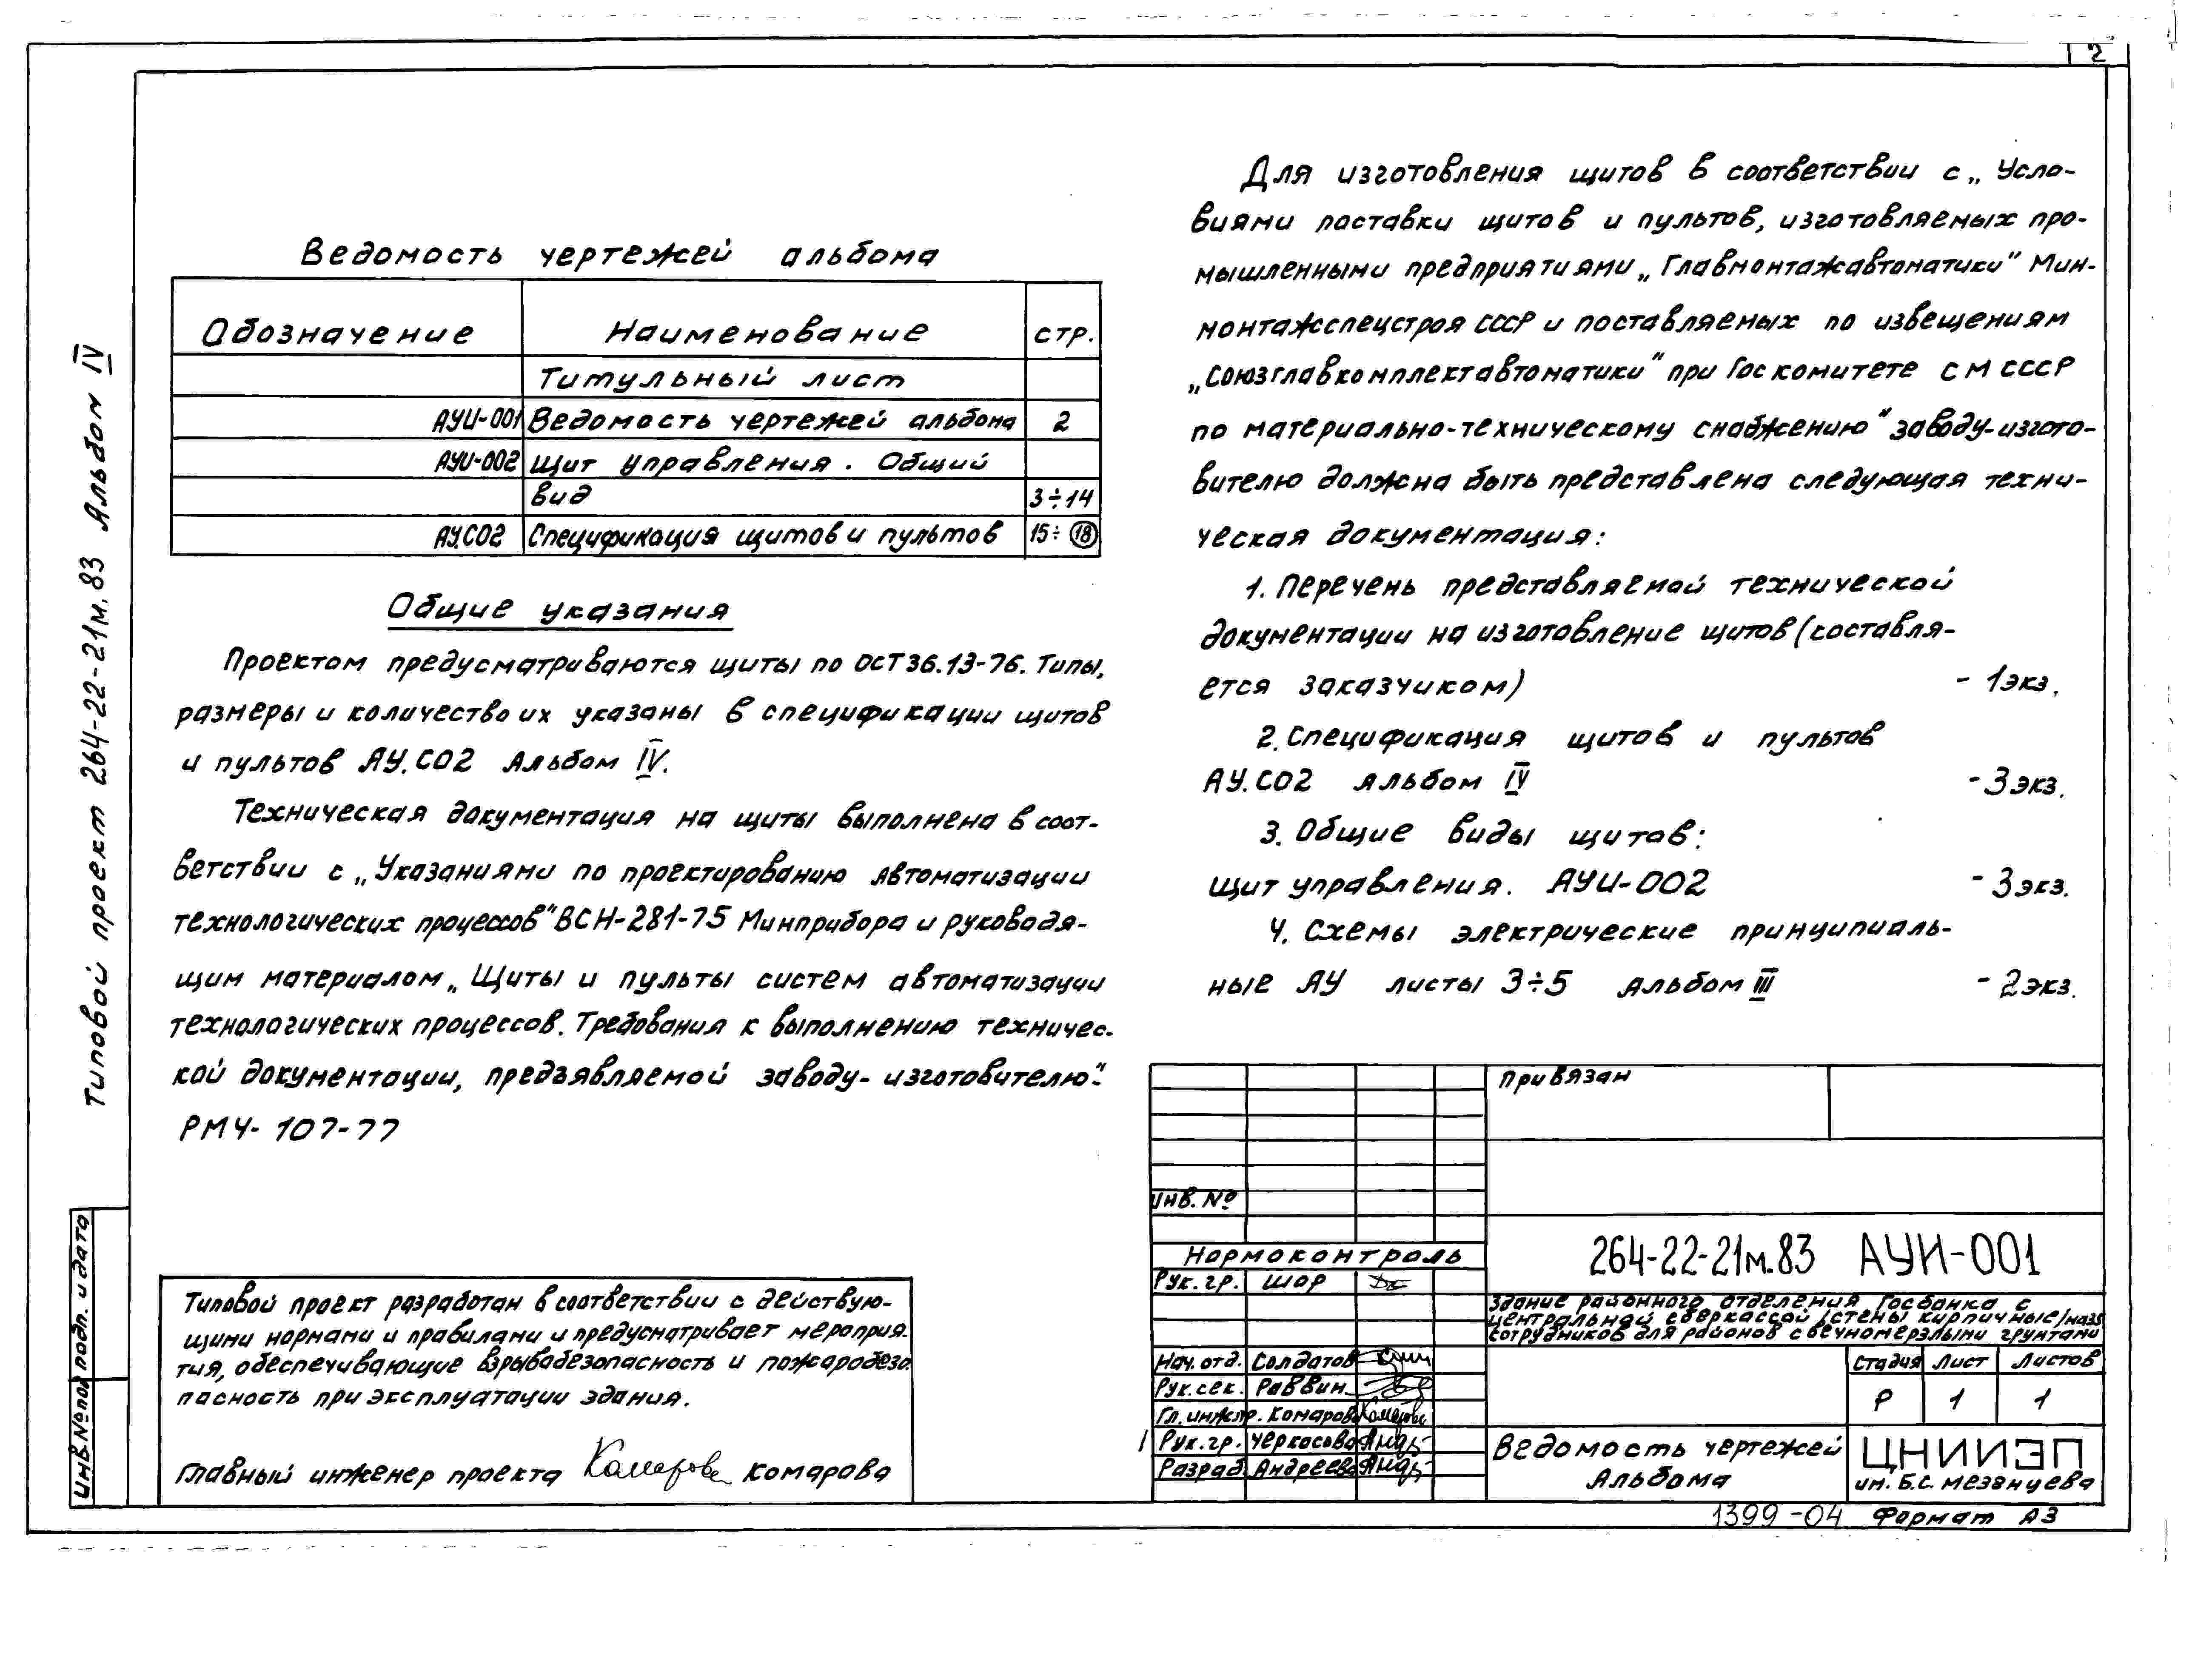 2
Типовой проект 264-22-21м.83 Альбом IV
Ведомость чертежей альбома
Обозначение Наименование стр.
Титульный лист
АУИ-001 Ведомость чертежей альбома 2
АУИ-002 Щит управления. Общий
вид 3÷14
АУ.СО2 Спецификация щитов и пультов 15÷18
Общие указания
Проектом предусматриваются щиты по ОСТ 36.13-76. Типы,
размеры и количество их указаны в спецификации щитов
и пультов АУ.СО2 Альбом IV.
Техническая документация на щиты выполнена в соот-
ветствии с „Указаниями по проектированию автоматизации
технологических процессов" ВСН-281-75 Минприбора и руководя-
щим материалом „Щиты и пульты систем автоматизации
технологических процессов. Требования к выполнению техничес-
кой документации, предъявляемой заводу-изготовителю".
РМ4-107-77
Типовой проект разработан в соответствии с действую-
щими нормами и правилами и предусматривает мероприя-
тия, обеспечивающие взрывобезопасность и пожаробезо
пасность при эксплуатации здания.
Главный инженер проекта Комарова
Для изготовления щитов в соответствии с „Усло-
виями поставки щитов и пультов, изготовляемых про-
мышленными предприятиями „Главмонтажавтоматики" Мин-
монтажспецстроя СССР и поставляемых по извещениям
„Союзглавкомплектавтоматики" при Госкомитете СМ СССР
по материально-техническому снабжению" заводу-изгото-
вителю должна быть представлена следующая техни-
ческая документация:
1. Перечень представляемой технической
документации на изготовление щитов (составля-
ется заказчиком) - 1экз.
2. Спецификация щитов и пультов
АУ.СО2 Альбом IV - 3экз.
3. Общие виды щитов:
Щит управления. АУИ-002 - 3экз.
4. Схемы электрические принципиаль-
ные АУ листы 3÷5 Альбом III - 2экз.
Привязан
Инв. №
Нормоконтроль
Рук. гр. Шор
264-22-21м.83 АУИ-001
Здание районного отделения Госбанка с
центральной сберкассой /стены кирпичные/на35
сотрудников для районов с вечномерзлыми грунтами
Нач. отд. Солдатов
Рук. сек. Раввин
Гл. инж.пр. Комарова
Рук. гр. Черкасова
Разраб. Андреева
Стадия Лист Листов
Р 1 1
Ведомость чертежей
Альбома
ЦНИИЭП
им. Б.С. Мезенцева
Инв.№ подл. Подп. и дата
1399-04 Формат А3